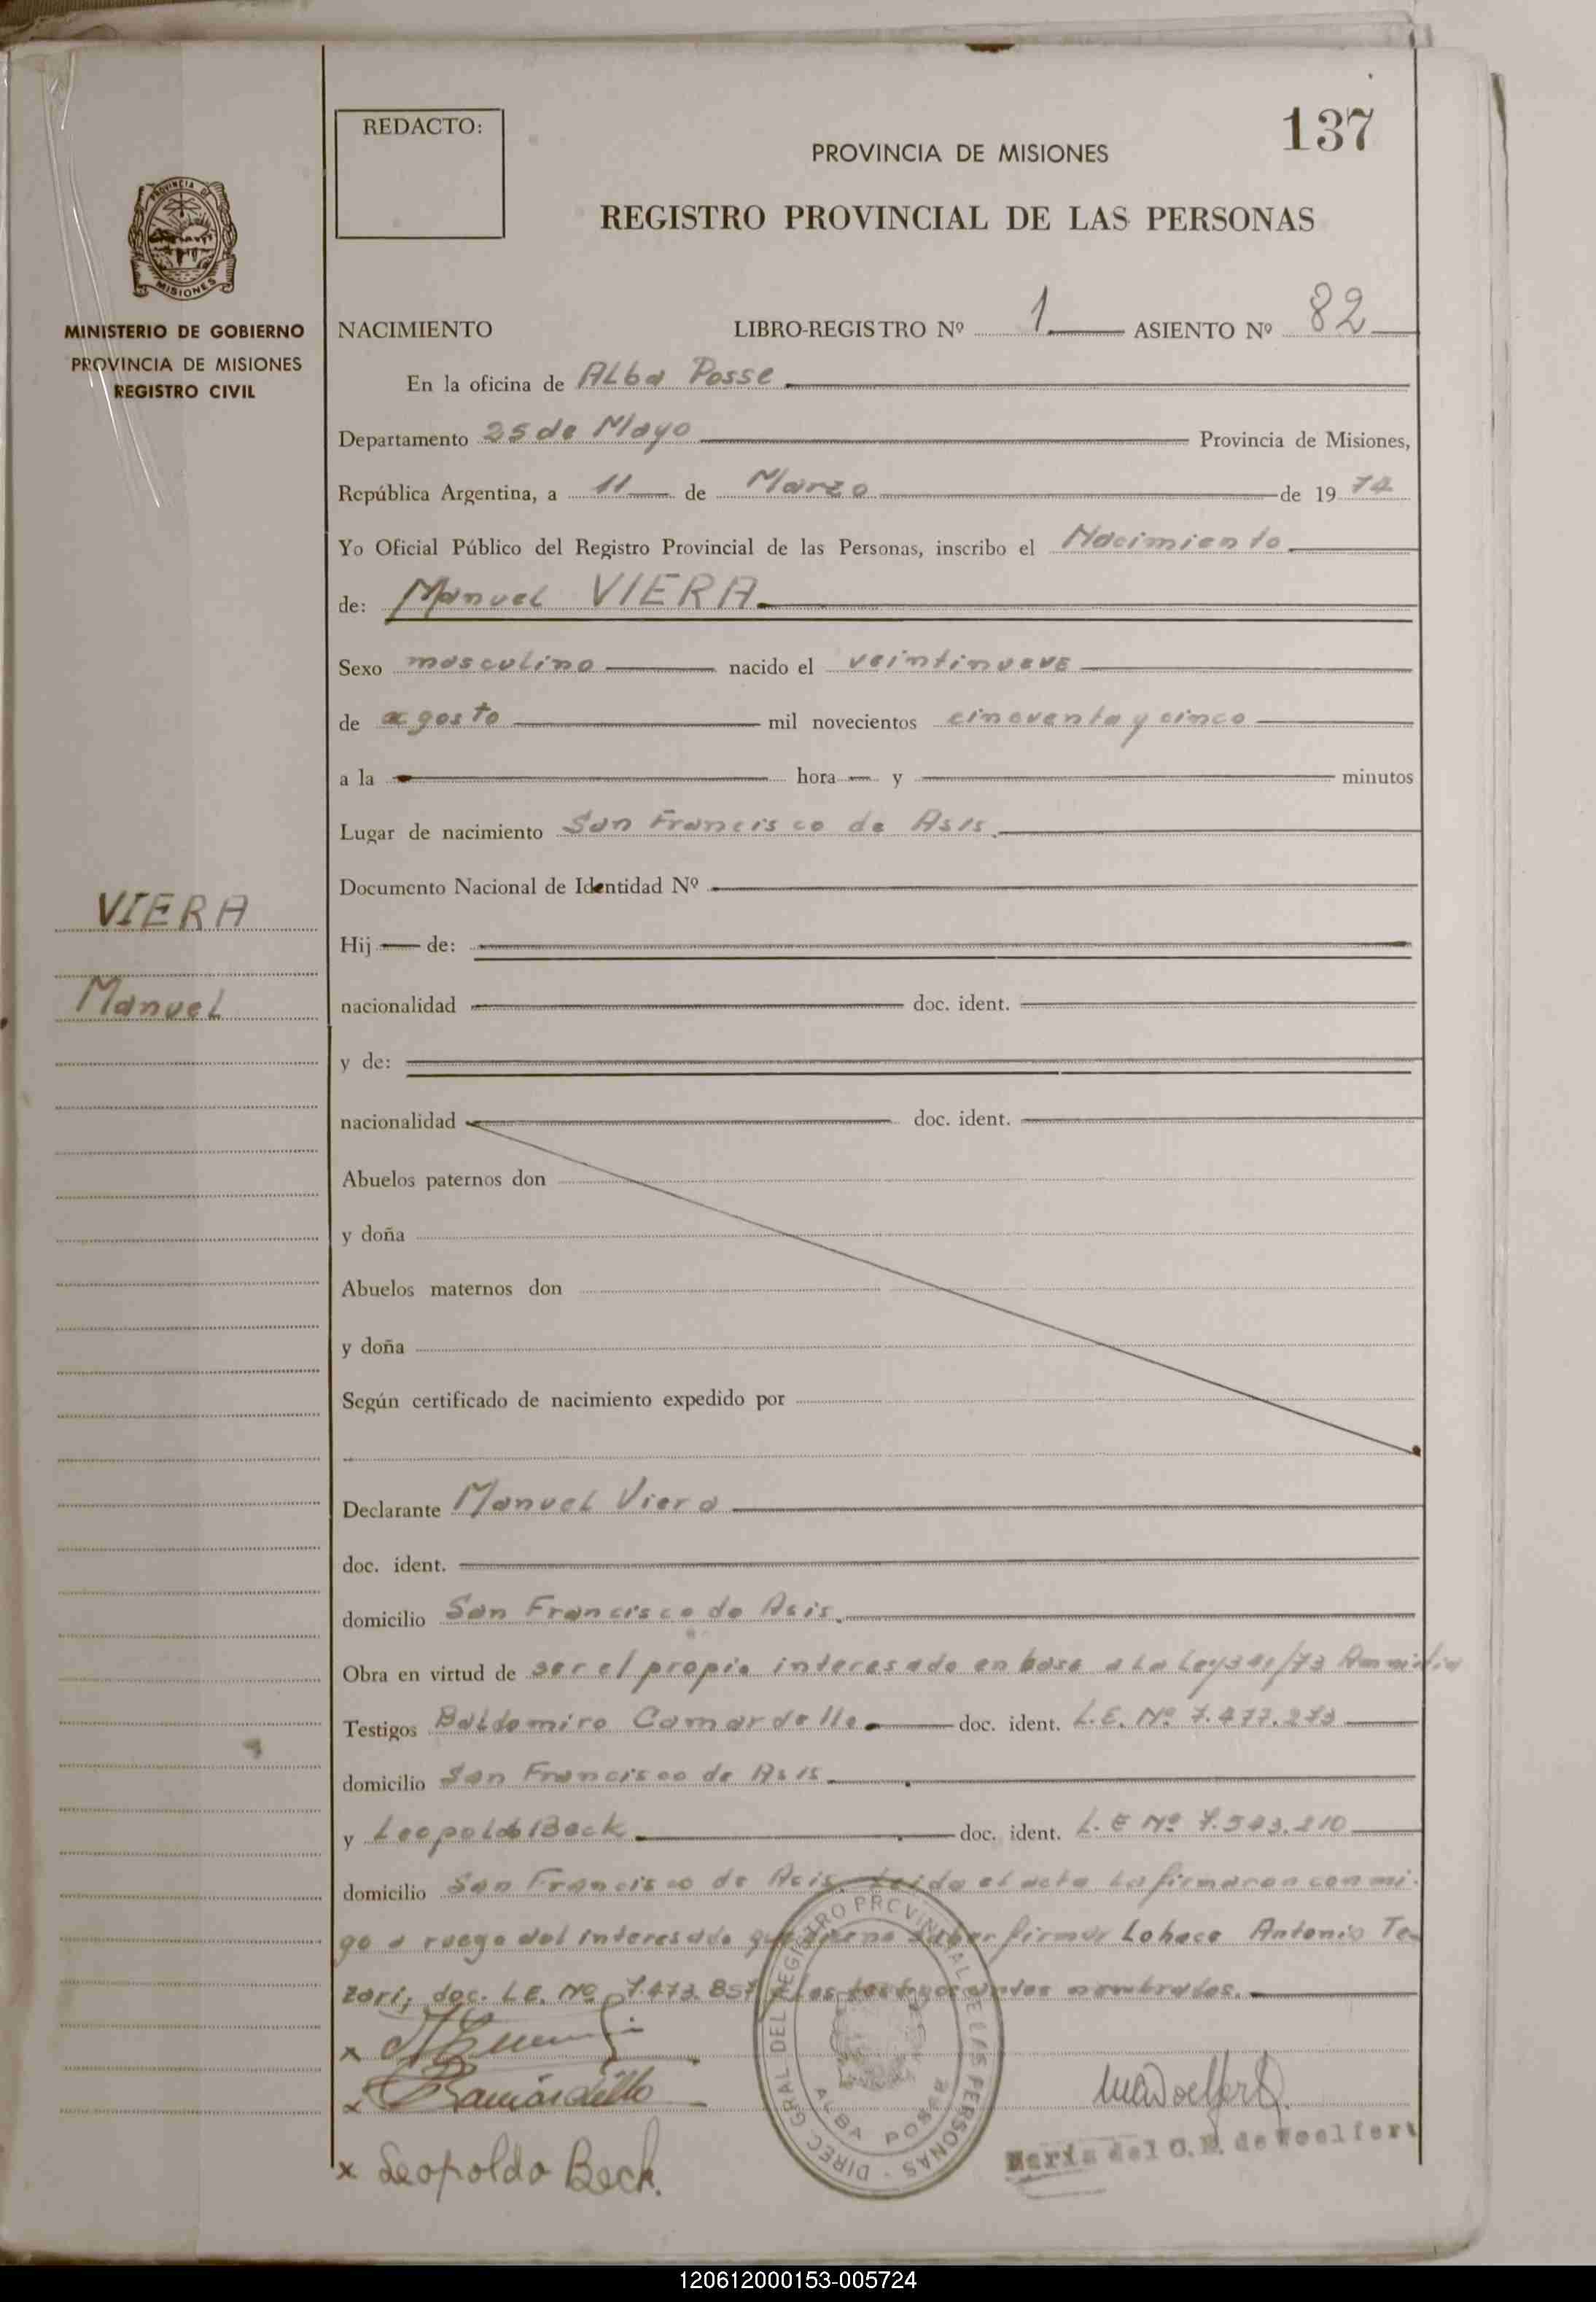 137
REDACTO:
PROVINCIA DE MISIONES
REGISTRO PROVINCIAL DE LAS PERSONAS
PROVINCIA DE
MISIONES
MINISTERIO DE GOBIERNO
PROVINCIA DE MISIONES
REGISTRO CIVIL
NACIMIENTO LIBRO-REGISTRO Nº 1 ASIENTO Nº 82
En la oficina de Alba Posse
Departamento 25 de Mayo Provincia de Misiones,
República Argentina, a 11 de Marzo de 19 74
Yo Oficial Público del Registro Provincial de las Personas, inscribo el Nacimiento
de: Manuel VIERA
Sexo masculino nacido el veintinueve
de agosto mil novecientos cincuenta y cinco
a la hora y minutos
Lugar de nacimiento San Francisco de Asis
Documento Nacional de Identidad Nº
VIERA
Manuel
Hij de:
nacionalidad doc. ident.
y de:
nacionalidad doc. ident.
Abuelos paternos don
y doña
Abuelos maternos don
y doña
Según certificado de nacimiento expedido por
Declarante Manuel Viera
doc. ident.
domicilio San Francisco de Asis.
Obra en virtud de ser el propio interesado en base a la Ley /73
Testigos Baldomiro Camardello doc. ident. L.E. Nº 7.477.273
domicilio San Francisco de Asis
y Leopoldo Beck doc. ident. L.E Nº 7.543.210
domicilio San Francisco de Asis. Leida el acta la firmaron conmi-
go a ruego del interesado que firmar Lohace Antonio Te-
zari, doc. L.E. Nº 7.473.857 y los testigos antes nombrados.
x
x Camardello
x Leopoldo Beck.
DIREC. GRAL. DEL REGISTRO PROVINCIAL DE LAS PERSONAS
ALBA POSSE
María del C. de Woelfert
120612000153-005724